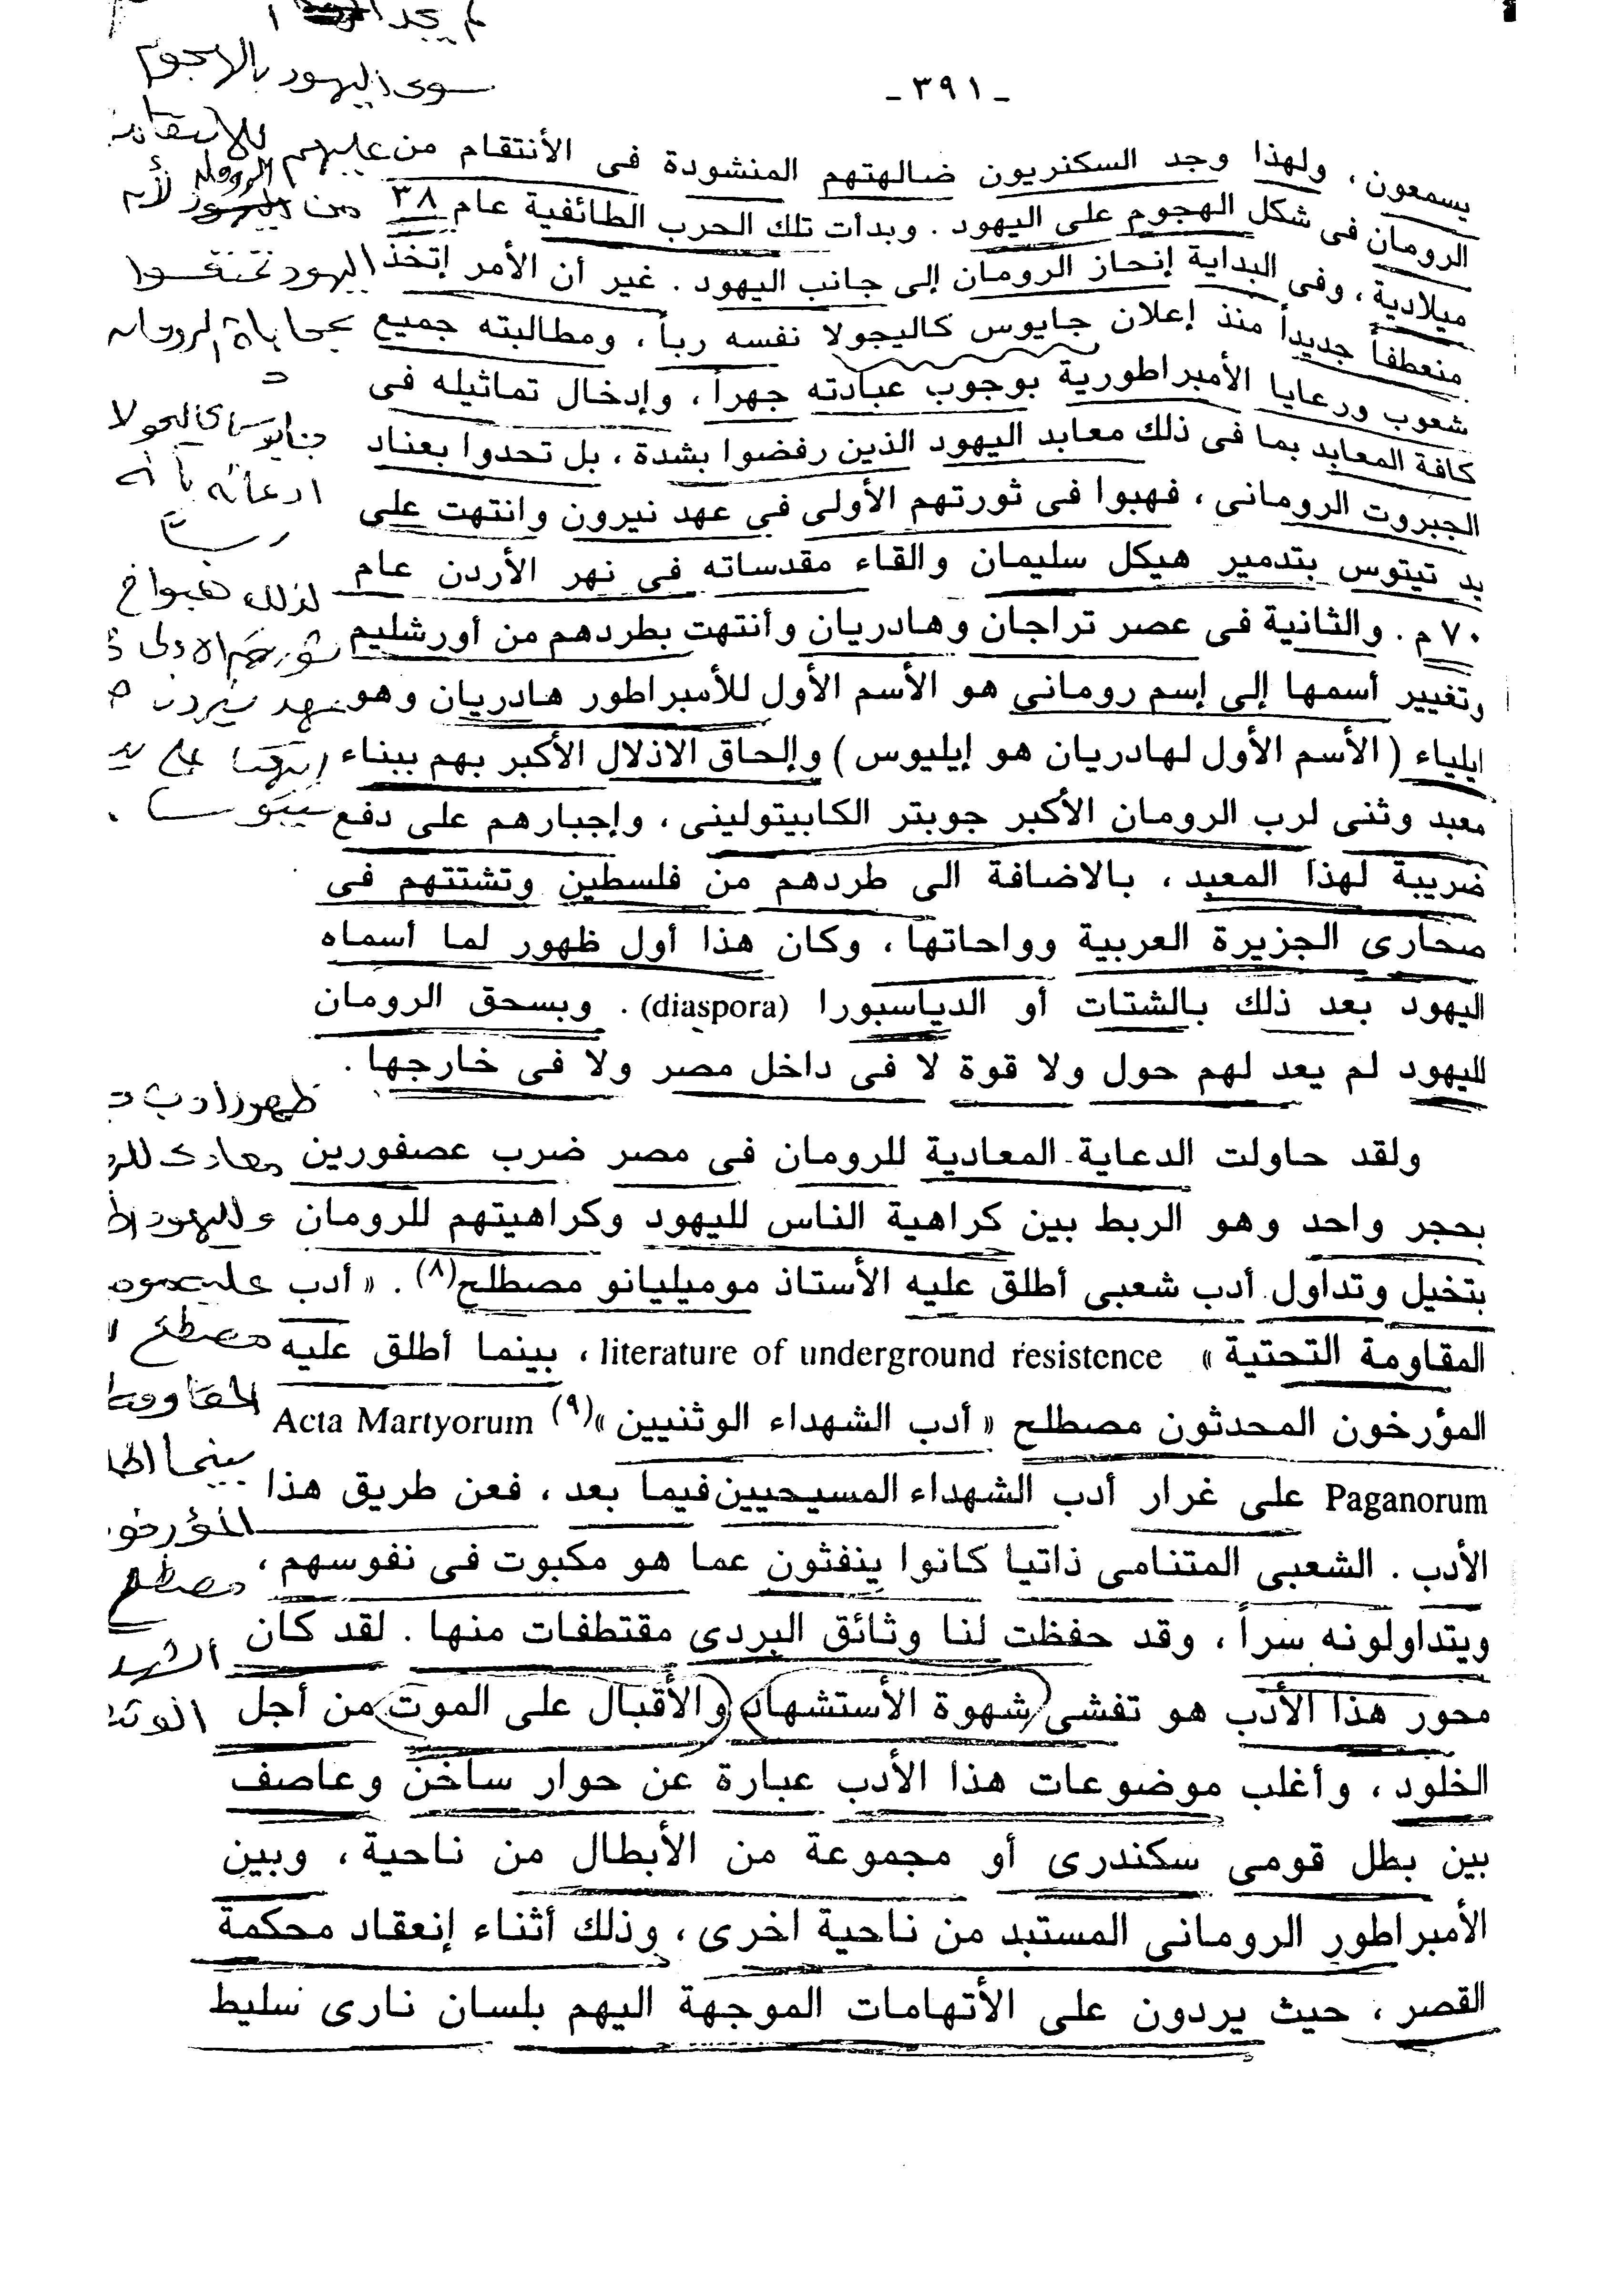 - ٣٩١ -
يسمعون، ولهذا وجد السكنريون ضالهتهم المنشودة فى الأنتقام من
الرومان فى شكل الهجوم على اليهود. وبدأت تلك الحرب الطائفية عام ٣٨
ميلادية، وفى البداية إنحاز الرومان إلى جانب اليهود. غير أن الأمر إتخذ
منعطفاً جديداً منذ إعلان جايوس كاليجولا نفسه رباً، ومطالبته جميع
شعوب ورعايا الأمبراطورية بوجوب عبادته جهراً، وإدخال تماثيله فى
كافة المعابد بما فى ذلك معابد اليهود الذين رفضوا بشدة، بل تحدوا بعناد
الجبروت الرومانى، فهبوا فى ثورتهم الأولى في عهد نيرون وانتهت على
يد تيتوس بتدمير هيكل سليمان والقاء مقدساته فى نهر الأردن عام
٧٠ م. والثانية فى عصر تراجان وهادريان وأنتهت بطردهم من أورشليم
وتغيير أسمها إلى إسم رومانى هو الأسم الأول للأمبراطور هادريان وهو
ايلياء (الأسم الأول لهادريان هو إيليوس) وإلحاق الاذلال الأكبر بهم ببناء
معبد وثنى لرب الرومان الأكبر جوبتر الكابيتولينى، وإجبارهم على دفع
ضريبة لهذا المعبد، بالاضافة الى طردهم من فلسطين وتشتتهم فى
صحارى الجزيرة العربية وواحاتها، وكان هذا أول ظهور لما أسماه
اليهود بعد ذلك بالشتات أو الدياسبورا (diaspora). وبسحق الرومان
لليهود لم يعد لهم حول ولا قوة لا فى داخل مصر ولا فى خارجها.
ولقد حاولت الدعاية المعادية للرومان فى مصر ضرب عصفورين
بحجر واحد وهو الربط بين كراهية الناس لليهود وكراهيتهم للرومان
بتخيل وتداول أدب شعبى أطلق عليه الأستاذ موميليانو مصطلح(٨). «أدب
المقاومة التحتية» literature of underground resistence، بينما أطلق عليه
المؤرخون المحدثون مصطلح «أدب الشهداء الوثنيين»(٩) Acta Martyorum
Paganorum على غرار أدب الشهداء المسيحيين فيما بعد، فعن طريق هذا
الأدب. الشعبى المتنامى ذاتيا كانوا ينفثون عما هو مكبوت فى نفوسهم،
ويتداولونه سراً، وقد حفظت لنا وثائق البردى مقتطفات منها. لقد كان
محور هذا الأدب هو تفشى شهوة الأستشهاد والأقبال على الموت من أجل
الخلود، وأغلب موضوعات هذا الأدب عبارة عن حوار ساخن وعاصف
بين بطل قومى سكندرى أو مجموعة من الأبطال من ناحية، وبين
الأمبراطور الرومانى المستبد من ناحية اخرى، وذلك أثناء إنعقاد محكمة
القصر، حيث يردون على الأتهامات الموجهة اليهم بلسان نارى سليط
سوى اليهود بالهجوم
عليهم
اليهود
جايوس كاليجولا
ادعائه بأنه
لذلك هبوا
على يد
تيتوس
ظهور أدب
معادى
عليه
مصطلح
المقاومة
بينما
مصطلح